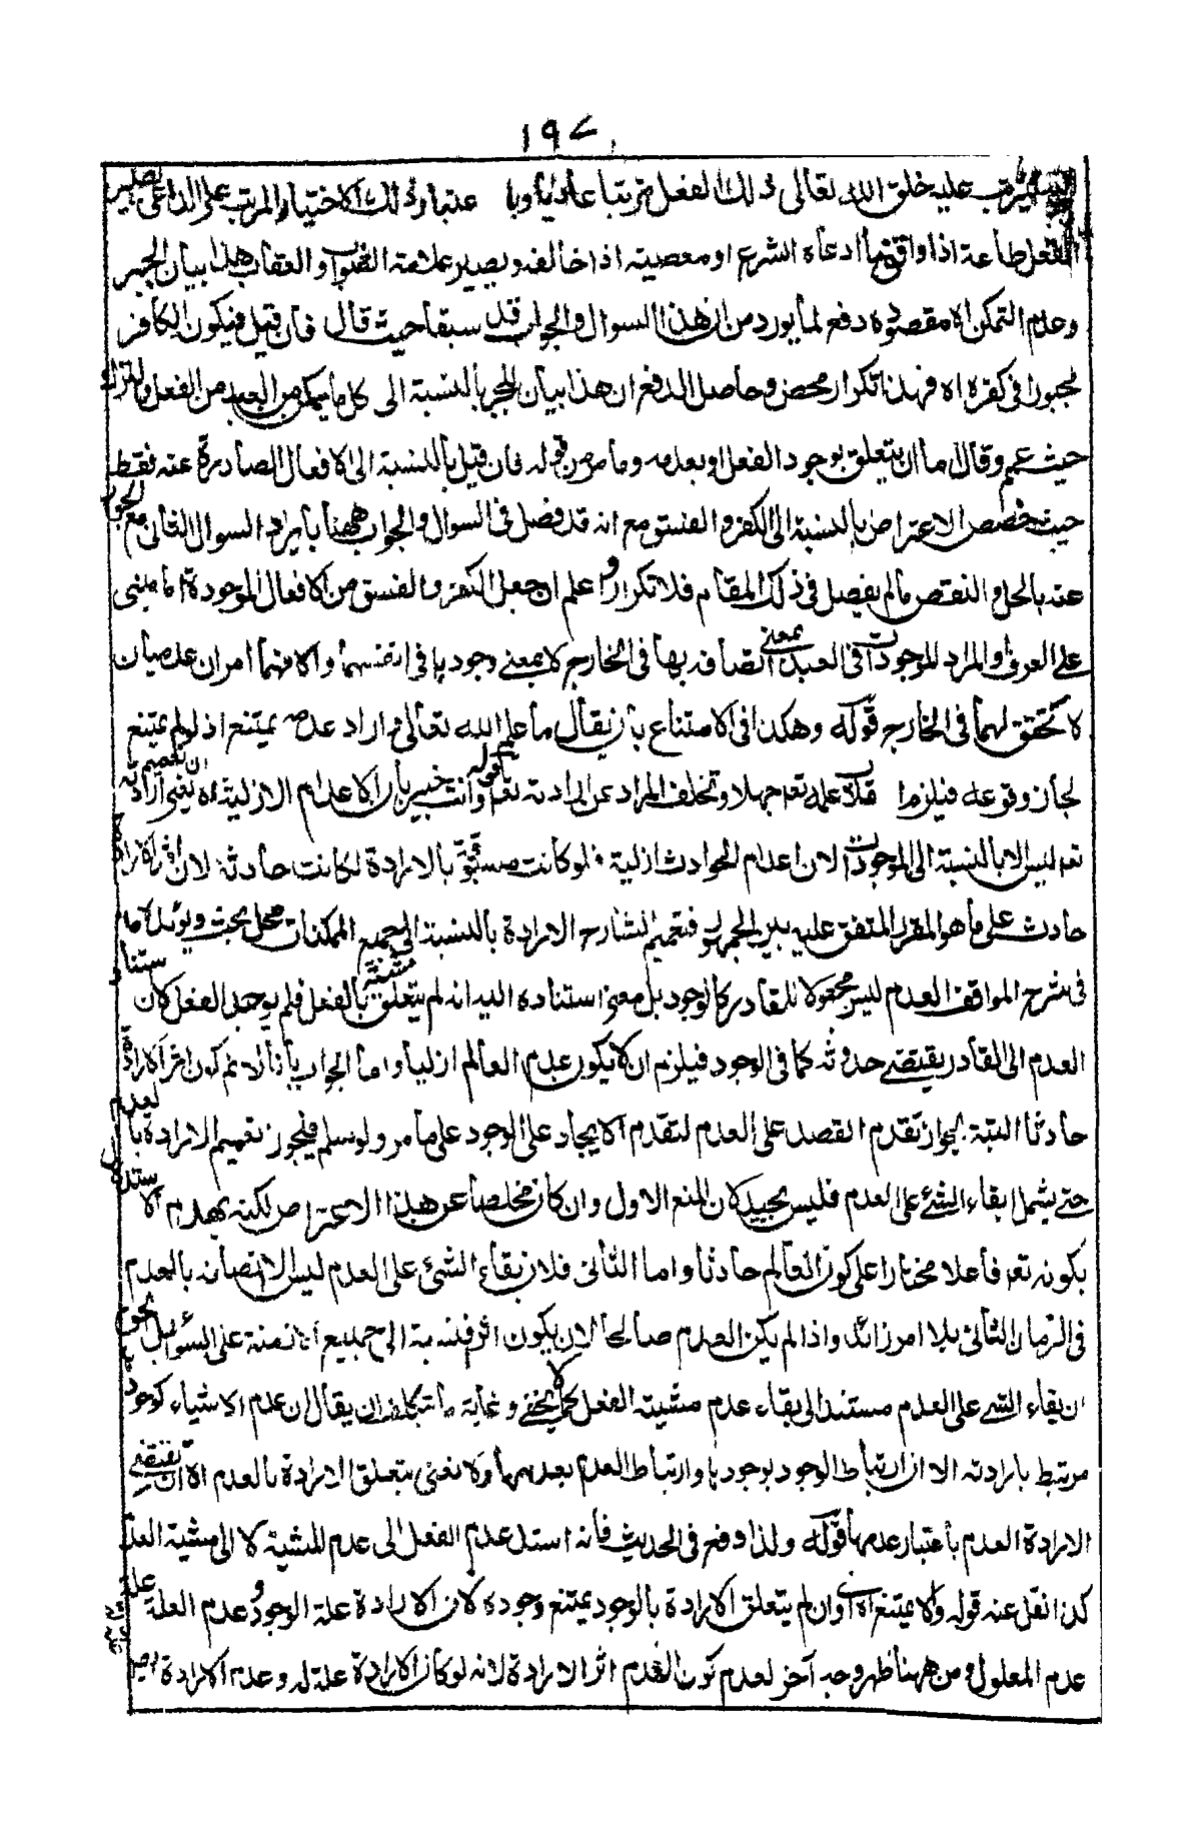 ١٩٧
يترتب عليه خلق الله تعالى ذلك الفعل ترتبا عاديا وبا عتبار ذلك الاختيار المرتب على الداعى يصير
الفعل طاعة اذا وافق ما ادعاه الشرع او معصية اذا خالفه ويصير علامة الثواب والعقاب هذا بيان الجبر
وعدم التمكن اه مقصوده دفع لما يورد من ان هذا السوال والجواب قد سبقا حيث قال فان قيل فيكون الكافر
مجبورا فى كفره اه فهذا تكرار محض وحاصل الدفع ان هذا بيان للجبر بالنسبة الى كل ما يمكن من العبد من الفعل والترك
حيث عمم وقال اما ان يتعلق بوجود الفعل او بعدمه وما مر من قوله فان قيل بالنسبة الى الافعال الصادرة عنه فقط
حيث خصص الاعتراض بالنسبة الى الكفر والفسق مع انه قد فصل فى السوال والجواب ههنا بايراد السوال الثانى مع الجواب
عنه بالحل والنقض ما لم يفصل فى ذلك المقام فلا تكرار واعلم ان جعل الكفر والفسق من الافعال الموجودة اما مبنى
على العرف او المراد الموجودات فى العبد بمعنى اتصافه بها فى الخارج لا بمعنى وجودها فى انفسهما والا فهما امران عدميان
لا تحقق لهما فى الخارج قوله وهكذا فى الامتناع بان يقال ما علم الله تعالى و اراد عدمه يمتنع اذ لو لم يمتنع
لجاز وقوعه فيلزم انقلاب علمه تعم جهلا وتخلف المراد عن ارادته تعم قوله وانت خبير بان الاعدام الازلية اه يعنى ان تعميم ارادته
تعم ليس الا بالنسبة الى الموجودات لان اعدام الحوادث ازلية فلو كانت مسبوقة بالارادة لكانت حادثة لان اثر الارادة
حادث على ما هو المقرر المتفق عليه بين الجمهور فتعميم الشارح الارادة بالنسبة الى جميع الممكنات محل بحث ويؤيده ما
فى شرح المواقف العدم ليس مجعولا للقادر كالوجود بل معنى استناده اليه انه لم يتعلق مشيته بالفعل فلم يوجد الفعل كان استناد
العدم الى القادر يقتضى حدوثه كما فى الوجود فيلزم ان لا يكون عدم العالم ازليا و اما الجواب بانا لا نم كون اثر الارادة
حادثا البتة لجواز تقدم القصد على العدم لتقدم الايجاد على الوجود على ما مر ولو سلم فيجوز تعميم الارادة بالعدم
حتى يشمل بقاء الشئ على العدم فليس بجيد لان المنع الاول وان كان مخلصا عن هذا الاعتراض لكنه يهدم الاستدلال
بكونه تعم فاعلا مختارا على كون العالم حادثا واما الثانى فلان بقاء الشئ على العدم ليس الا اتصافه بالعدم
فى الزمان الثانى بلا امر زائد واذا لم يكن العدم صالحا لان يكون اثر
ان بقاء الشئ على العدم مستند الى بقاء عدم مشية الفعل كما لا يخفى وغاية ما يتكلف ان يقال ان عدم الاشياء كوجودها
مرتبط بارادته الا ان ارتباط الوجود بوجودها وارتباط العدم بعدمها ولا نعنى بتعلق الارادة بالعدم الا ان تقتضى
الارادة العدم باعتبار عدمها قوله ولذا وقع فى الحديث فانه اسند عدم الفعل الى عدم المشية لا الى مشية العدم
كذا نقل عنه قوله والا يمتنع اه اى وان لم يتعلق الارادة بالوجود يمتنع وجوده لان الارادة علة الوجود وعدم العلة علة
عدم المعلول ومن ههنا ظهر وجه آخر لعدم كون العدم اثر الارادة لانه لو كان الارادة علة له وعدم الارادة